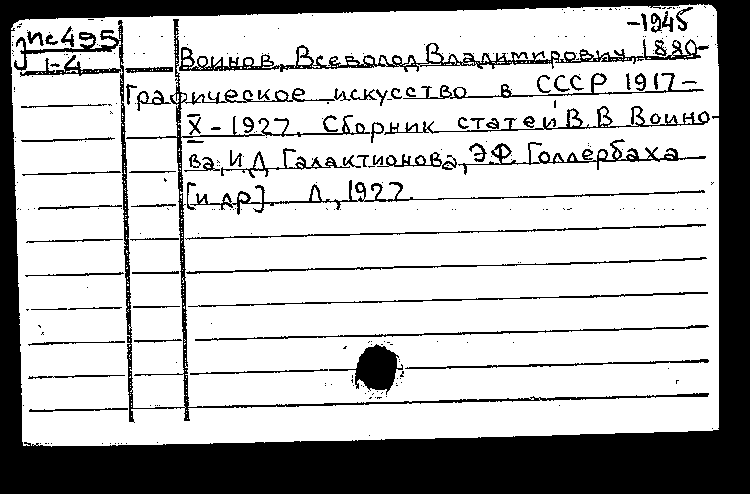 -1945
Jпс495
1-4
Воинов, Всеволод Владимирович, 1880-
Графическое искусство в СССР 1917-
X-1927. Сборник статей В.В Воино-
ва, И.Д. Галактионова, Э.Ф. Голлербаха
[и др]. Л., 1927.